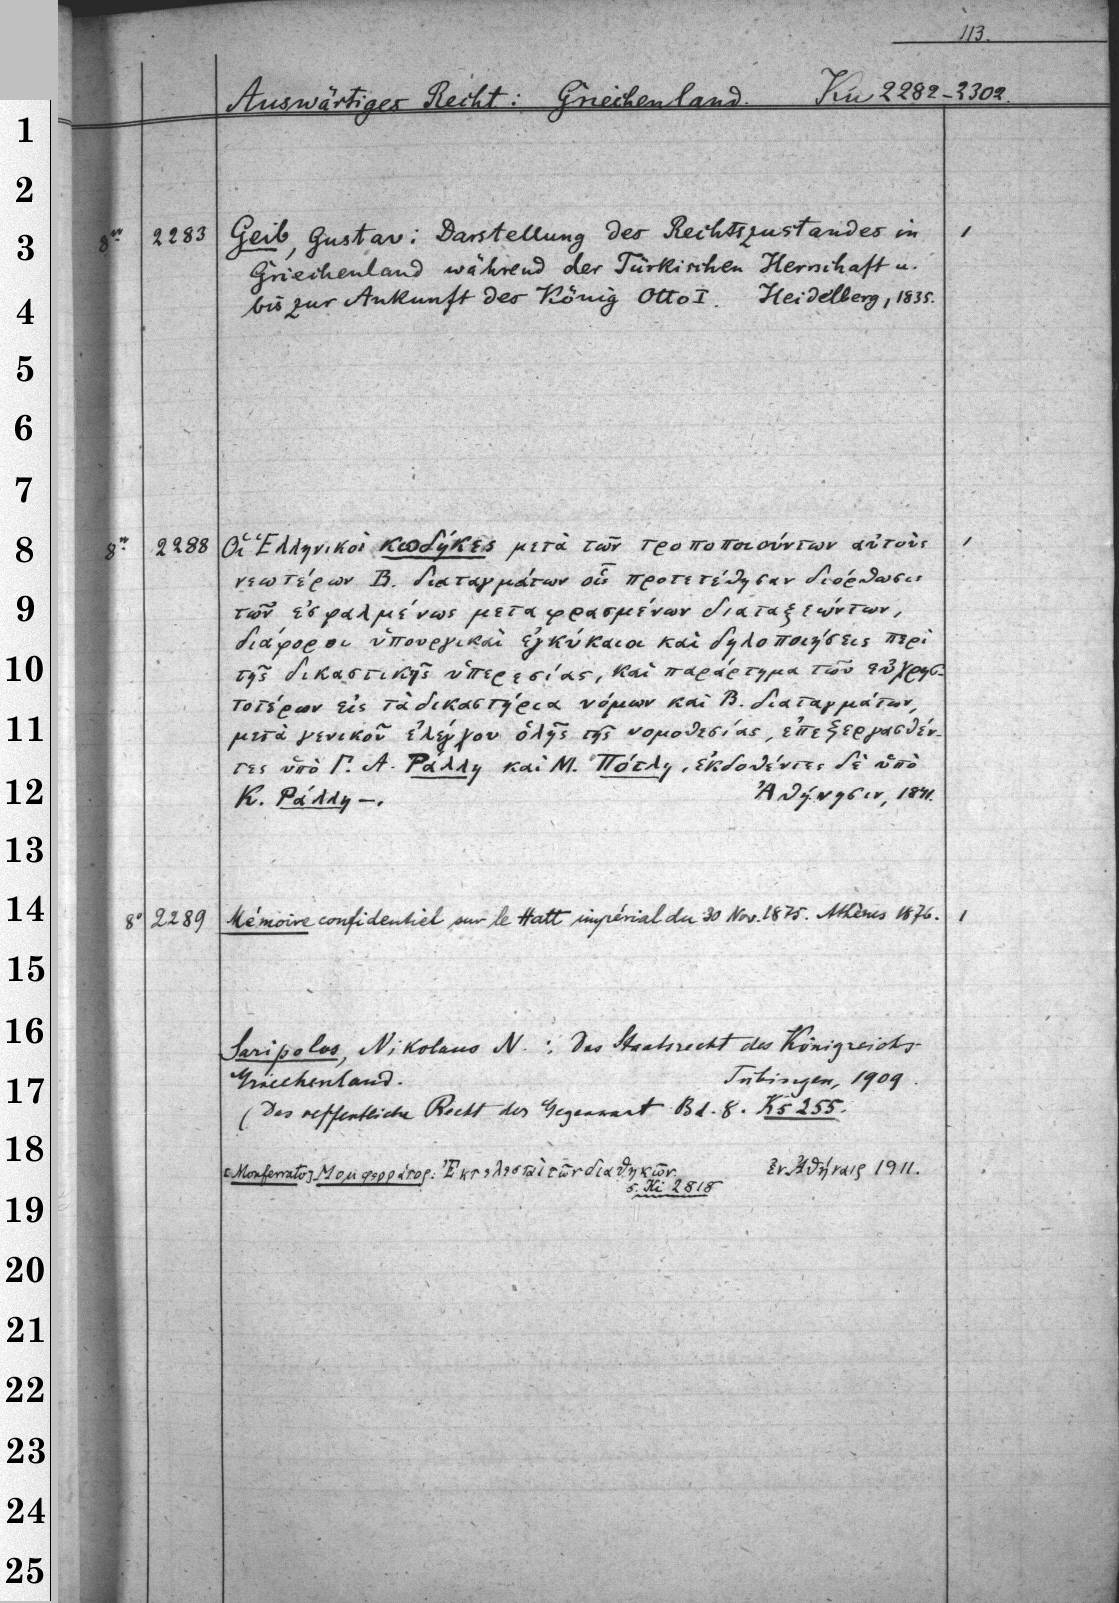 113.
Auswärtiges Recht: Griechenland. Ku 2282-2302.
8vo 2283 Geib, Gustav: Darstellung des Rechtszustandes in 1
Griechenland während der Türkischen Herrschaft u.
bis zur Ankunft des König Otto I. Heidelberg, 1835.
8vo 2288 Οἱ Ἑλληνικοὶ κωδήκες μετὰ τῶν τροποποιούντων αὐτοὺς 1
νεωτέρων Β. διαταγμάτων οἷς προτετέθησαν διόρθωσις
τῶν ἐσφαλμένως μεταφρασμένων διαταξεώντων,
διάφοροι ὑπουργικαὶ ἐγκύκλιοι καὶ δηλοποιήσεις περὶ
τῆς δικαστικῆς ὑπερεσίας, καὶ παράρτημα τῶν εὐχρησ-
τοτέρων εἰς τὰ δικαστήρια νόμων καὶ Β. διαταγμάτων,
μετὰ γενικοῦ ἐλέγχου ὁλῆς τῆς νομοθεσίας, ἐπεξεργασθέν-
τες ὑπὸ Γ. Α. Ράλλη καὶ Μ. Πότλη, ἐκδοθέντες δὲ ὑπὸ
Κ. Ράλλη –. Ἀθήνησιν, 1841.
8° 2289 Mémoire confidentiel sur le Hatt impérial du 30 Nov. 1875. Athènes 1876. 1
Saripolos, Nikolaus N.: Das Staatsrecht des Königreichs
Griechenland. Tübingen, 1909.
(Das oeffentliche Recht der Gegenwart Bd. 8. Ks 255.
[Monferratos] Μομφερράτος: Ἐκτελεσταὶ τῶν διαθηκῶν. ἐν Ἀθήναις 1911.
s. Ki 2818
1
2
3
4
5
6
7
8
9
10
11
12
13
14
15
16
17
18
19
20
21
22
23
24
25